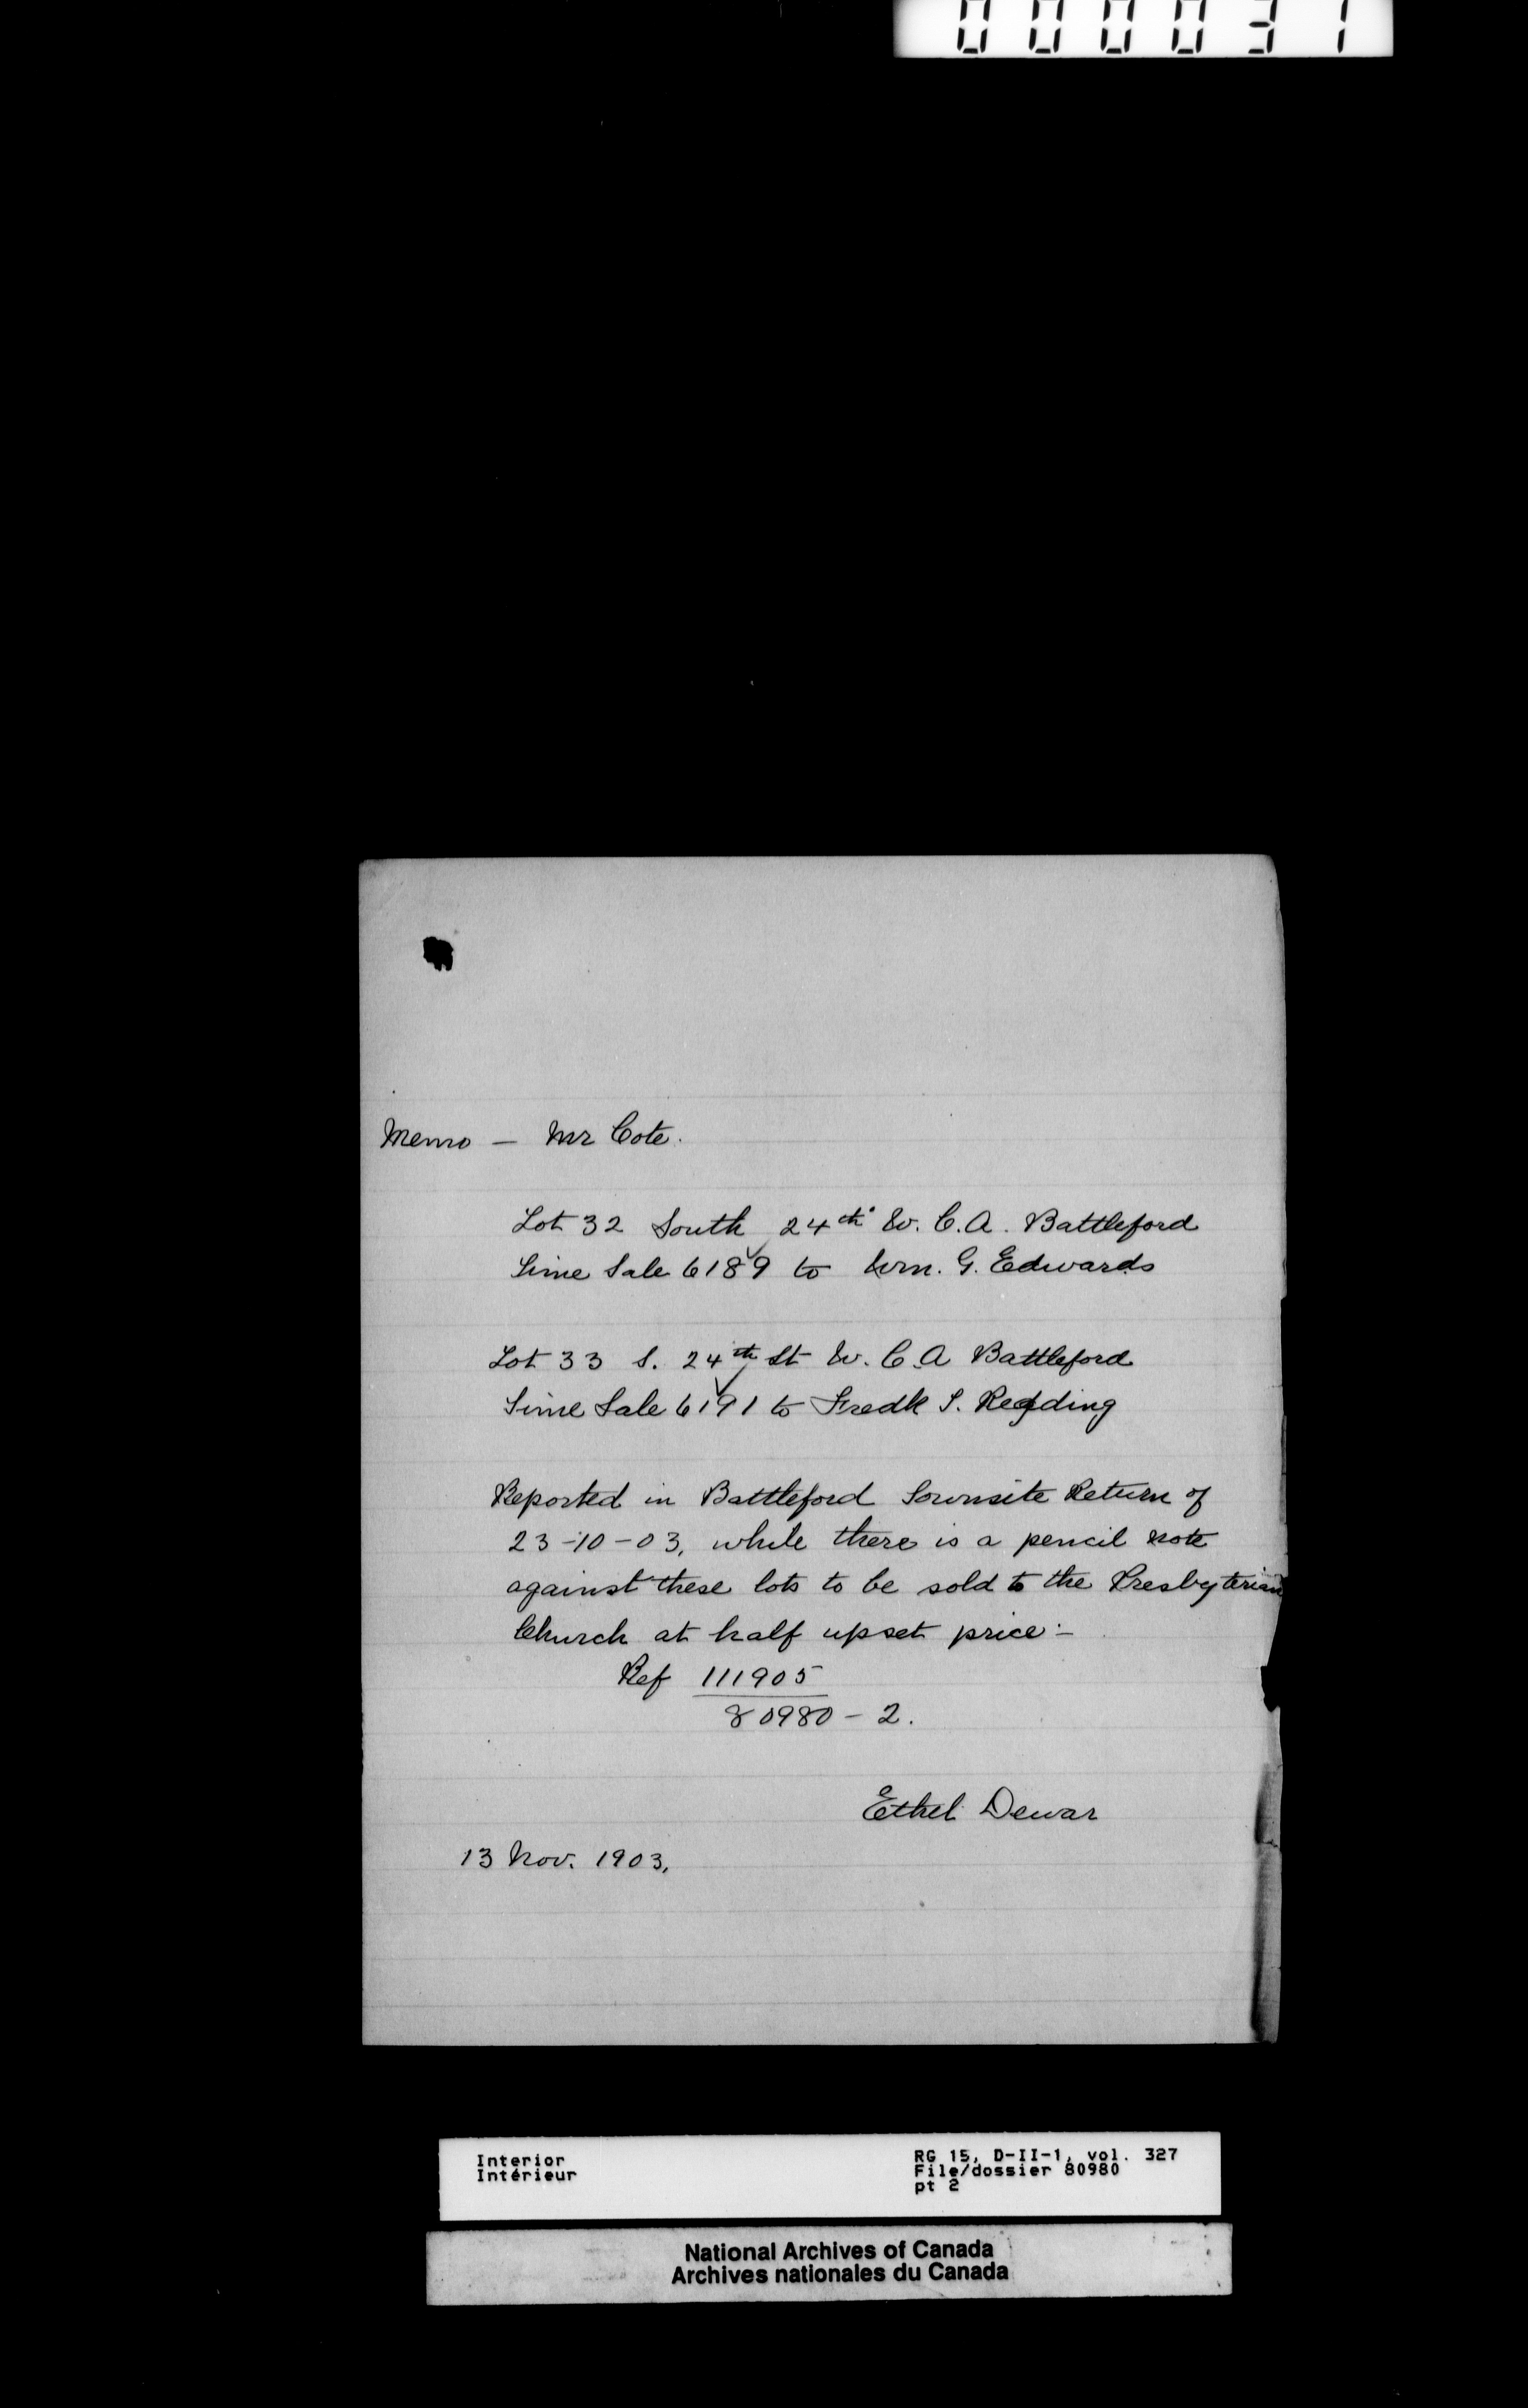 000031
Memo — Mr Cote.
Lot 32 South 24th W. C.A. Battleford
Time Sale 6189 to Wm. G. Edwards
Lot 33 S. 24th St W. C.A Battleford
Time Sale 6191 to Fredk S. Redding
Reported in Battleford Townsite Return of
23-10-03, while there is a pencil note
against these lots to be sold to the Presbyterian
Church at half upset price:-
Ref 111905
80980 - 2.
Ethel Dewar
13 Nov. 1903.
Interior
Intérieur
RG 15, D-II-1, vol. 327
File/dossier 80980
pt 2
National Archives of Canada
Archives nationales du Canada